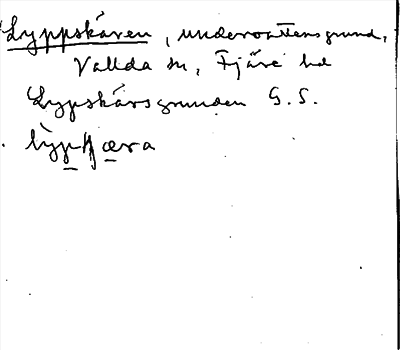 Lyppskären, undervattensgrund,
Vallda sn, Fjäre hd
Lypskärsgrunden G.S.